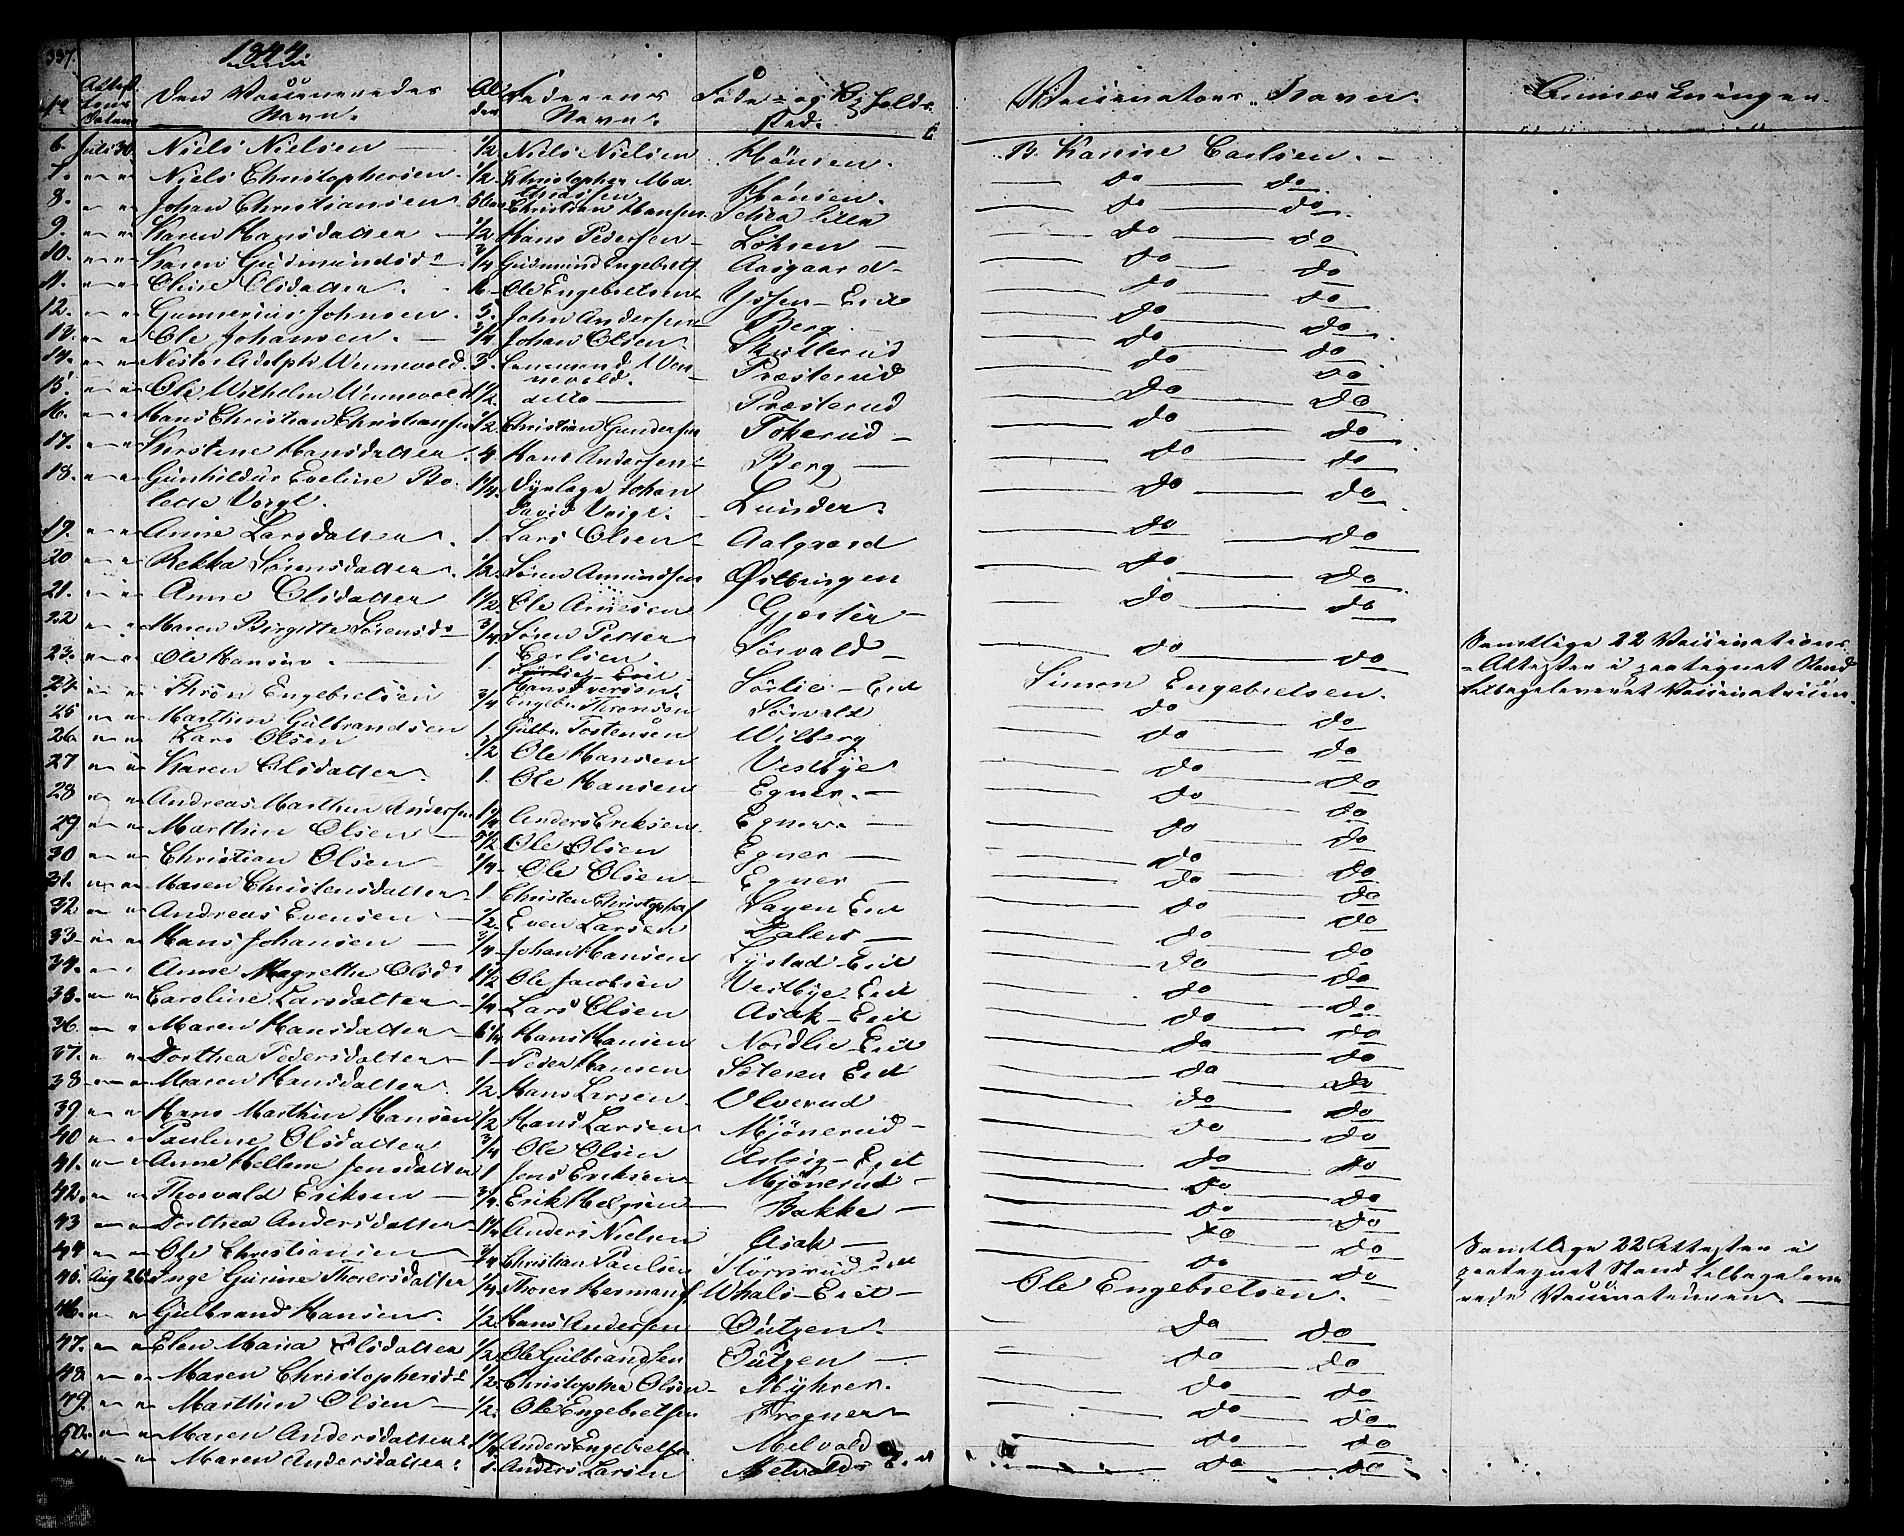 337.
1844.
Attest
Den Vaccineredes Navn.
Al der
Faderens Navn.
Føde- og Opholds- Sted.
Vaccinatørs Navn.
Anmærkninger.
6. Juli 30. Niels Nielsen 1/2 Niels Nielsen Hönsen. B. Karine Carlsen.
7. Niels Christophersen 1/2 Christopher Mathissen Hönsen. do do
8. Johan Christiansen Christian Hansen do do
9. Karen Hansdatter 1/2 Hans Pedersen Löksen do do
10. Karen Gudmundsd 3/4 Gudmund Engebretsen Aasgaard do do
11. Oline Olsdatter Ole Engebretsen Eiet do do
12. Gunnerius Johnsen 3. John Andersen Berg do do
13. Ole Johansen 3/4 Johan Olsen Skutterud do do
14. Adolph Wennevold 3. Wennevold Præsterud do do
15. Ole Wilhelm Wennevold 1 1/2 ditto Præsterud do do
16. Hans Christian Christiansen 1/2 Christian Gundersen Tokerud do do
17. Kirstine Hansdatter 4 Hans Andersen Berg do do
18. Gunhilda Eveline Bolette Voigt. 1/4 Dyrlæge Johan David Voigt. Lunder do do
19. Anne Larsdatter 1. Lars Olsen Aalgaard do do
20 Rekka Sörensdatter 1/2 Sören Amundsen Østbyingen do do
21. Anne Olsdatter 1 1/2 Ole Arnesen Gjestu do do
22 Maren Birgitte Sörensd 3/4 Sören Petter Carlsen Sörvald do do Samtlige 22 Vaccinations-
Attester i paategnet Stand
tilbageleveret Vaccinatricen.
23. Ole Hansen 1. Hans Iversen Sörlie Eiet Simon Engebretsen.
24 Thron Engebretsen 3/4 Engebr. Thronsen Sörvald do do
25 Marthin Gulbrandsen 1 Gulbr. Tostensen Wilberg do do
26 Lars Olsen 1/2 Ole Hansen Vestbye do do
27 Karen Olsdatter 1. Ole Hansen Egner do do
28 Andreas Marthin Andersen 1 1/4 Anders Eriksen Egner do do
29 Marthin Olsen 5 1/2 Ole Olsen Egner do do
30 Christian Olsen 1/4 Ole Olsen Egner do do
31. Maren Christensdatter 1 Christen Christophs Eiet do do
32 Andreas Evensen 1/2 Even Larsen Dalen do do
33 Hans Johansen 3/4 Johan Hansen Lystad Eiet do do
34. Anne Magrethe Olsd 1 1/2 Ole Jacobsen Vestbye Eiet do do
35. Caroline Larsdatter 1/4 Lars Olsen Asak Eiet do do
36. Maren Hansdatter 6 1/4 Hans Hansen Nordlie Eiet do do
37. Dorthea Pedersdatter 1 Peder Hansen Eiet do do
38 Maren Hansdatter 1/2 Hans Larsen Ulverud do do
39 Hans Marthin Hansen 1/2 Hans Larsen Mjönerud do do
40 Pauline Olsdatter 3/4 Ole Olsen Eiet do do
41. Anne Hellene Jensdatter 1 Jens Eriksen Mjönerud do do
42. Thorvald Eriksen 3/4 Erik Helgesen Bakke do do
43 Dorthea Andersdatter 1 1/4 Anders Nielsen Asak do do
44 Ole Christiansen 3/4 Christian Paulsen do do Samtlige 22 Attester i
paategnet Stand tilbageleve-
rede Vaccinateuren.
45. Aug 26 Inge Gurine Thorersdatter 1/4 Thorer Hermans Whals Eiet Ole Engebretsen.
46. Gulbrand Hansen 1/2 Hans Andersen Outzen do do
47. Elen Maria Olsdatter 1/2 Ole Gulbrandsen Outzen do do
48. Maren Christophersd 1/2 Christopher Olsen Myhrer do do
49. Marthin Olsen 1/2. Ole Engebretsen Frogner do do
50. Maren Andersdatter 1 1/4 Anders Engebretsen Melvold do do
Maren Andersdatter Anders Larsen Melvold do do